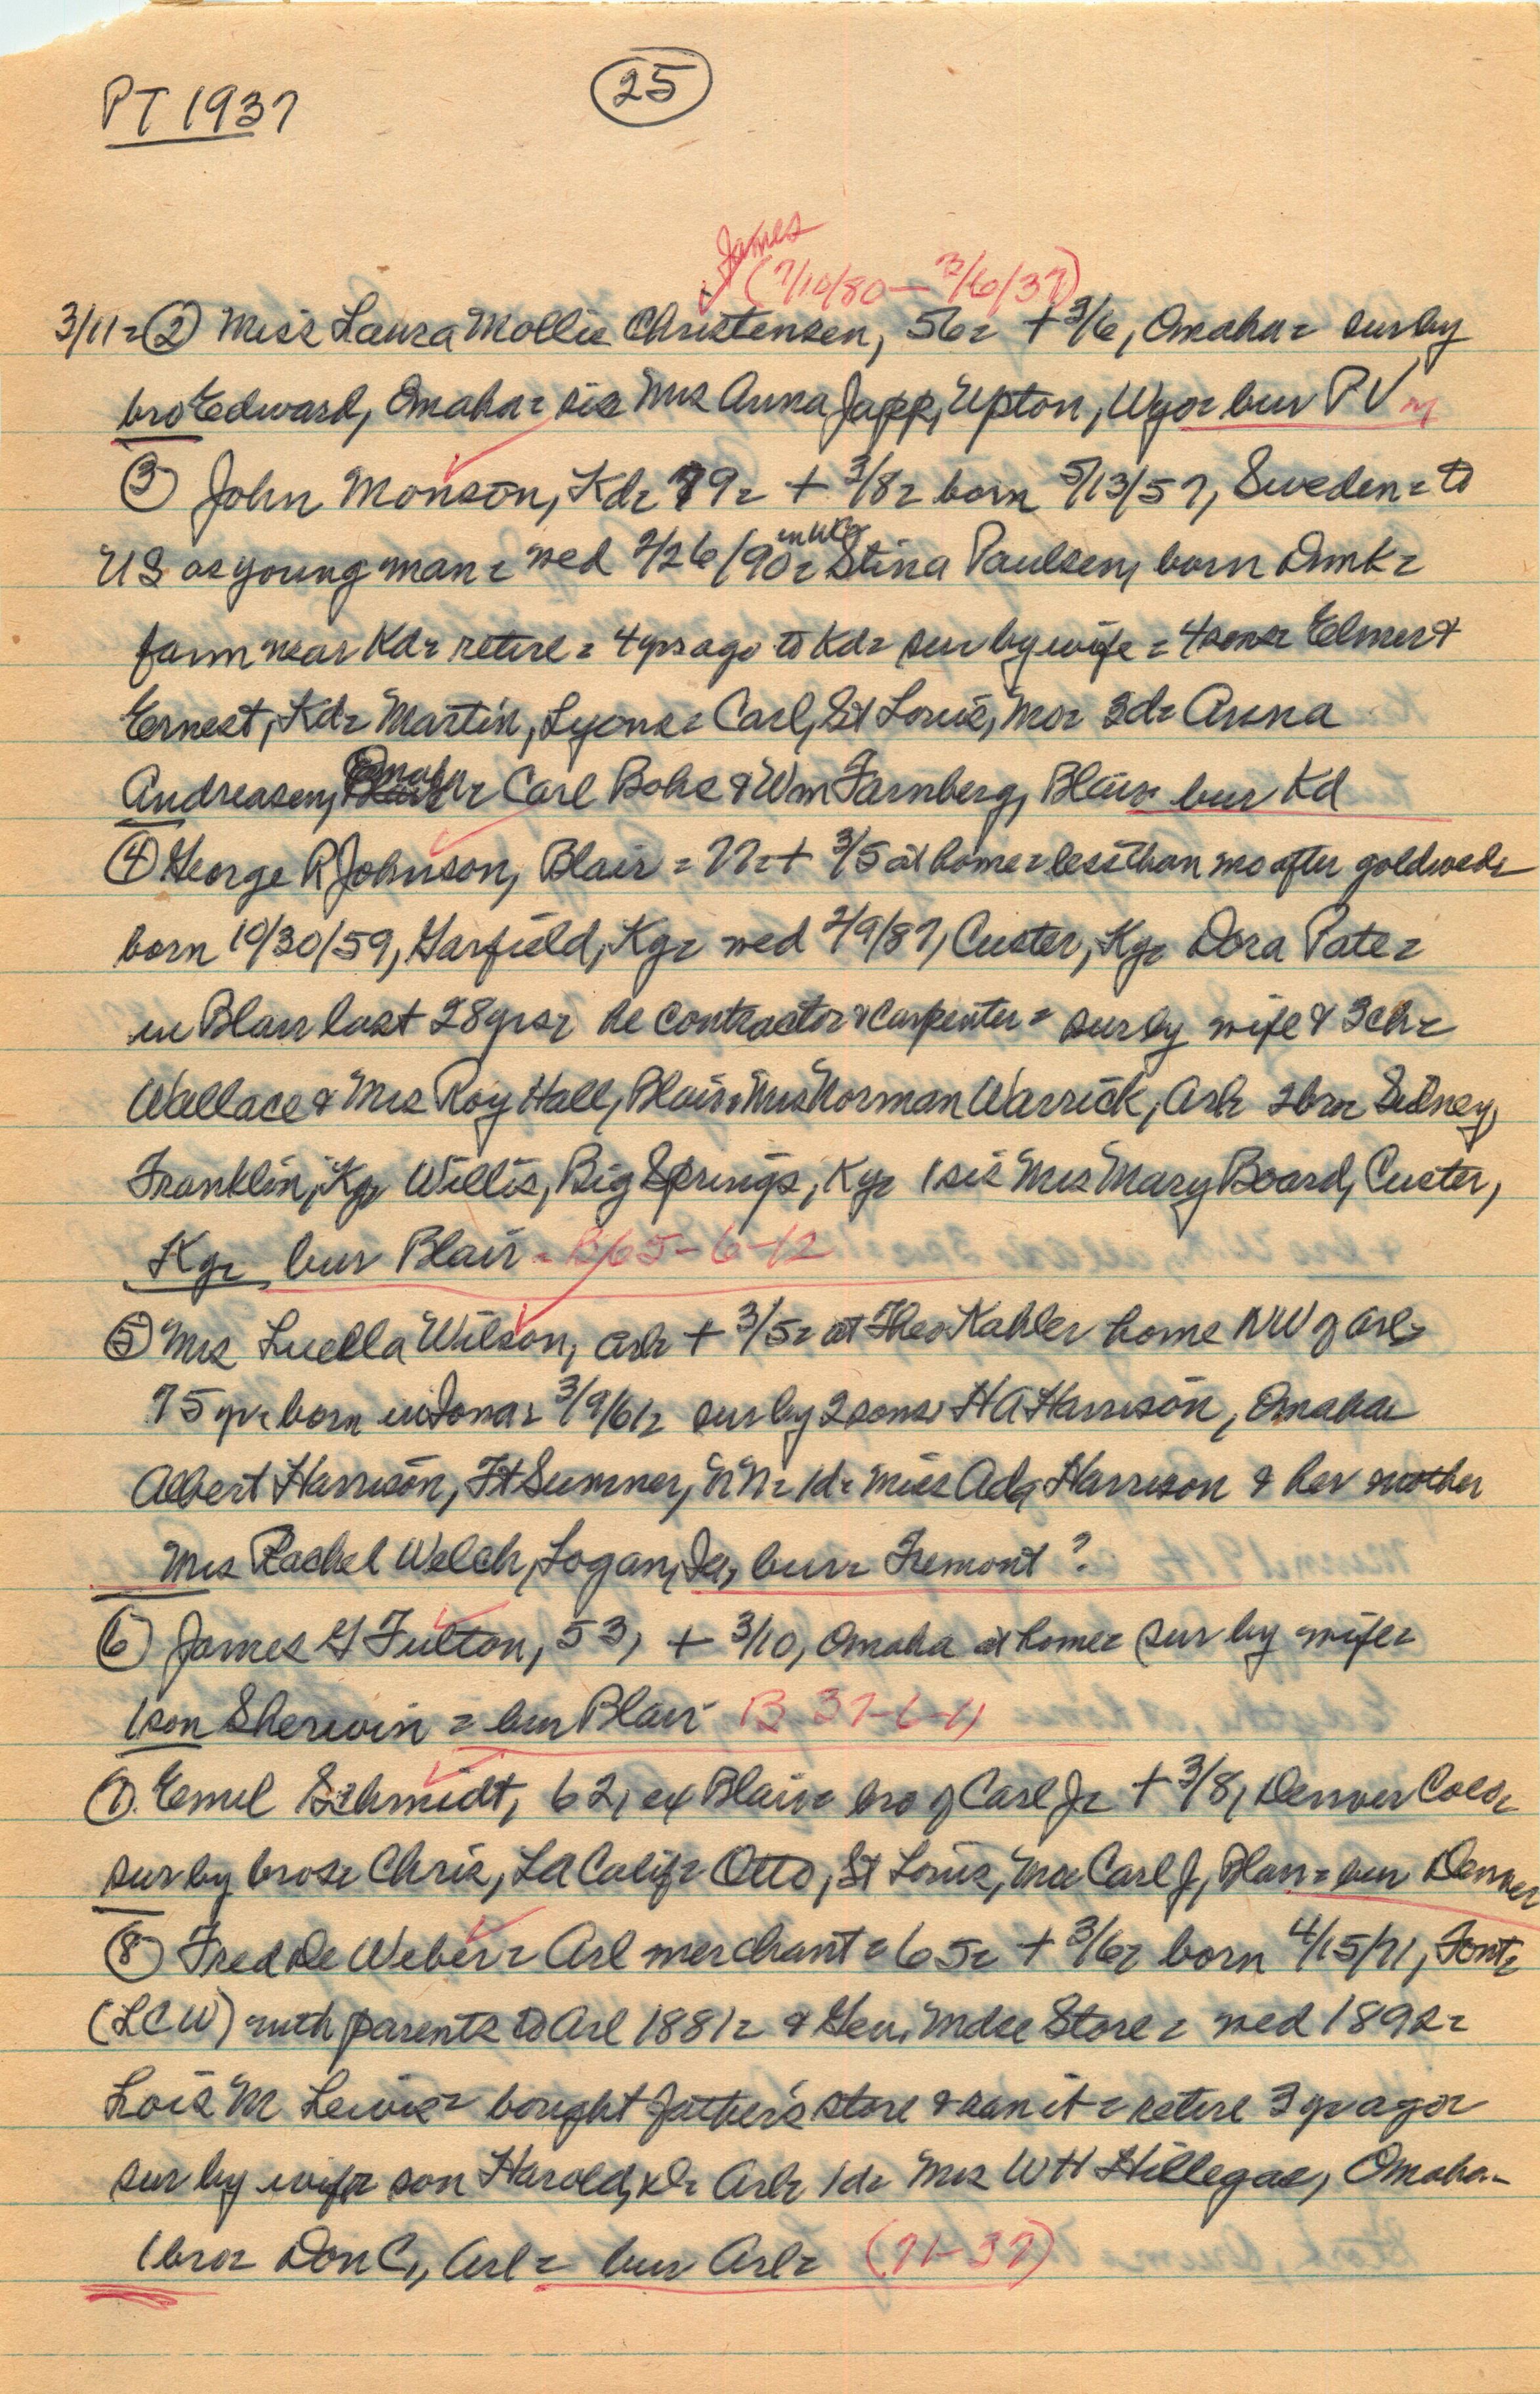 PT 1937
25
James
(7/10/80 — 3/6/37)
3/11 = ② Miss Laura Mollie Christensen, 56 = + 3/6, Omaha = sur by
bro Edward, Omaha = sis Mrs Anna Japp, Upton, Wyo = bur PV
③ John Monson, Kd = 79 = + 3/8 = born 5/13/57, Sweden = to
in WCo
US as young man = wed 2/26/90 = Stina Paulsen, born Dmk =
farm near Kd = retire = 4 yrs ago to Kd = sur by wife = 4 sons = Elmer &
Ernest, Kd = Martin, Lyons = Carl, St Louis, Mo = 3d = Anna
Omaha
Andreasen, = Carl Bohs & Wm Farnberg, Blair = bur Kd
④ George R Johnson, Blair = 77 = + 3/5 at home = less than mo after gold wed =
born 10/30/59, Garfield, Ky = wed 2/9/87, Custer, Ky = Dora Pate =
in Blair last 28 yrs = he contractor & carpenter = sur by wife & 3 ch =
Wallace & Mrs Roy Hall, Blair = Mrs Norman Warrick, Arl = 2 bro = Sidney,
Franklin, Ky = Willis, Big Springs, Ky = 1 sis Mrs Mary Board, Custer,
Ky = bur Blair = B 65-6-12
⑤ Mrs Luella Wilson, Arl = + 3/5 = at Theo Kahler home NW of Arl =
75 yr = born in Iowa = 3/9/61 = sur by 2 sons = H A Harrison, Omaha =
Albert Harrison, Ft Sumner, NM = 1d = Miss Ada Harrison & her mother
Mrs Rachel Welch, Logan, Ia, bur = Fremont ?
⑥ James G Fulton, 53, + 3/10, Omaha at home = sur by wife =
1 son Sherwin = bur Blair B 37-6-11
⑦ Emil Schmidt, 62, ex Blair = bro of Carl J = + 3/8, Denver Colo =
sur by bros = Chris, LA Calif = Otto, St Louis, Mo = Carl J, Blair = bur Denver
⑧ Fred De Weber = Arl merchant = 65 = + 3/6 = born 4/15/71, Font =
(LCW) with parents to Arl 1881 = & Gen. Mdse Store = wed 1892 =
Lois M Lewis = bought father's store & ran it = retire 3 yr ago =
sur by wife = son Harold, Arl = 1d = Mrs W H Hillegas, Omaha =
1 bro = Don C., Arl = bur Arl = (71-37)